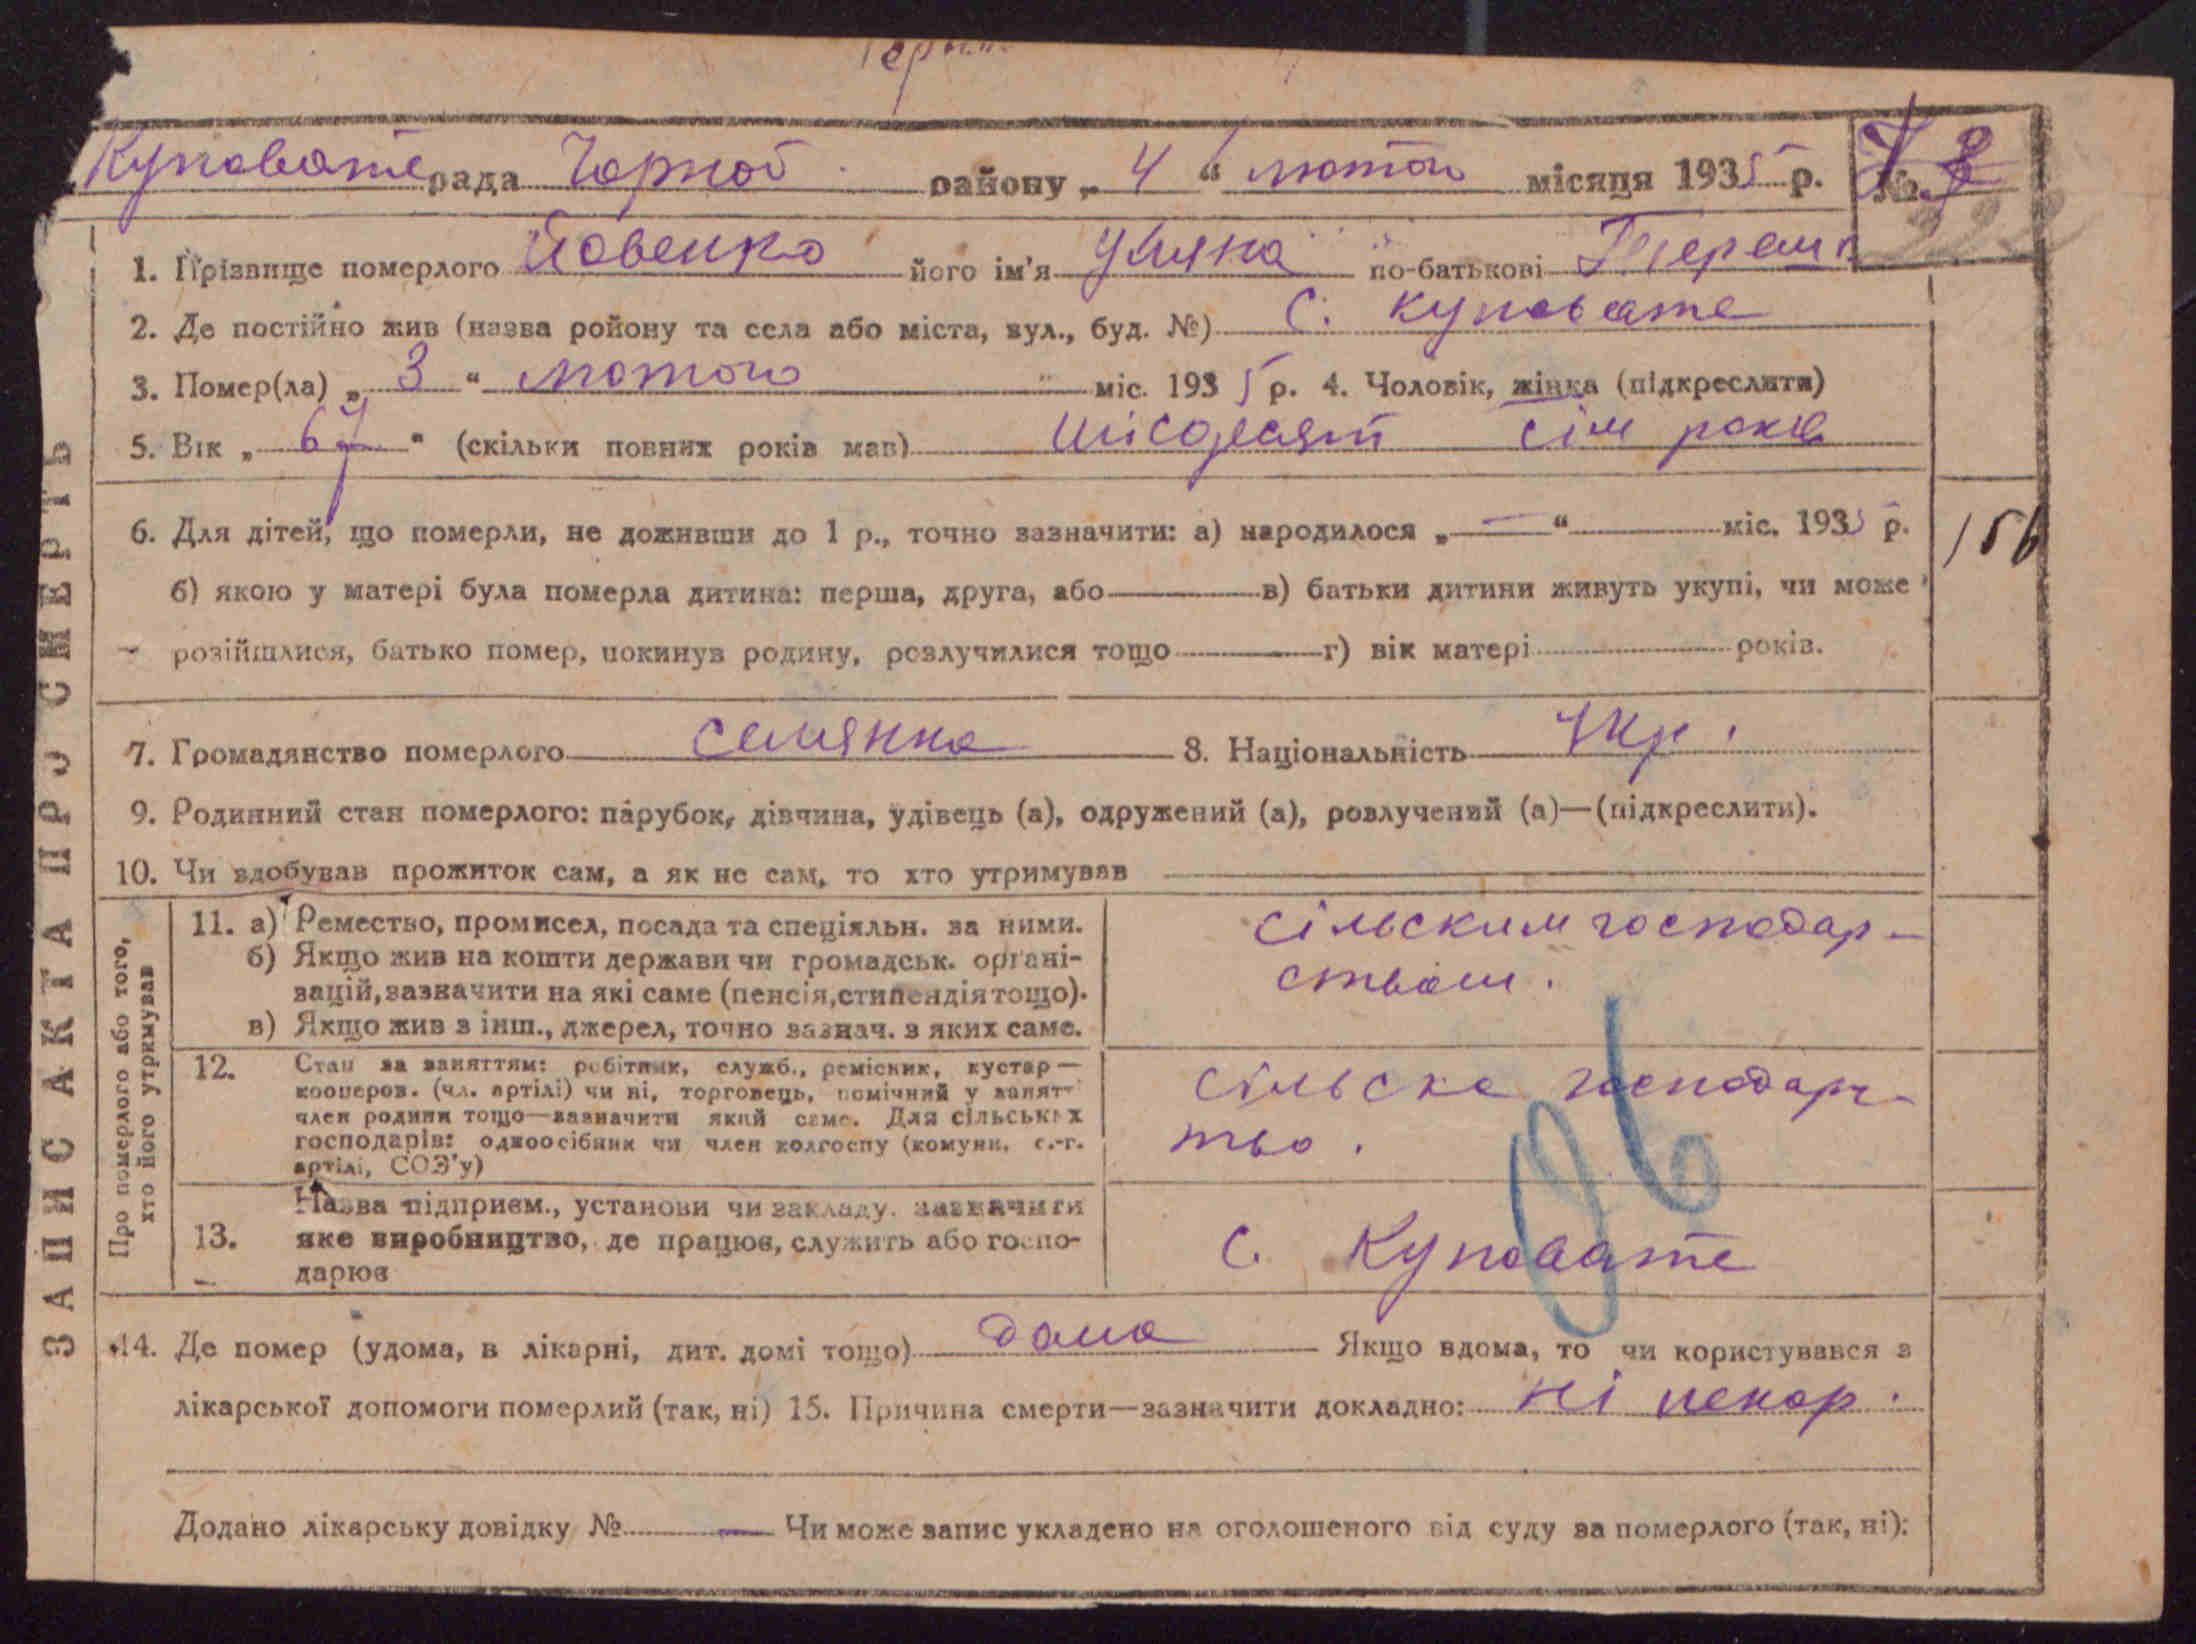 Куповате рада Чорноб. району „ 4 “ лютого місяця 1935 р.
1. Прізвище померлого Йовенко його ім'я Уляна по-батькові Терешк
2. Де постійно жив (назва ройону та села або міста, вул., буд. №) с. Куповате
3. Помер(ла) „ 3 “ лютого міс. 1935 р. 4. Чоловік, жінка (підкреслити)
5. Вік „ 67 “ (скільки повних років мав) шісодесят сім років
6. Для дітей, що померли, не доживши до 1 р., точно зазначити: а) народилося „ — “ міс. 1935 р.
156
б) якою у матері була померла дитина: перша, друга, або в) батьки дитини живуть укупі, чи може
розійшлися, батько помер, покинув родину, розлучилися тощо г) вік матері років.
7. Громадянство померлого селянка 8. Національність Укр.
9. Родинний стан померлого: парубок, дівчина, удівець (а), одружений (а), розлучений (а)—(підкреслити).
10. Чи здобував прожиток сам, а як не сам, то хто утримував
ЗАПИС АКТА ПРО СМЕРТЬ
Про померлого або того,
хто його утримував
11. а) Ремество, промисел, посада та спеціяльн. за ними.
б) Якщо жив на кошти держави чи громадськ. органі-
зацій, зазначити на які саме (пенсія, стипендія тощо).
в) Якщо жив з інш., джерел, точно зазнач. з яких саме.
сільским господар-
ством.
12. Стан за заняттям: робітник, служб., ремісник, кустар—
кооперов. (чл. артілі) чи ні, торговець, помічний у занятт
член родини тощо—зазначити який саме. Для сільських
господарів: одноосібник чи член колгоспу (комуни, с.-г.
артілі, СОЗ'у)
сільске господарс-
тво.
13. Назва підприєм., установи чи закладу. зазначити
яке виробництво, де працює, служить або госпо-
дарює
с. Куповате
14. Де помер (удома, в лікарні, дит. домі тощо) дома Якщо вдома, то чи користувався з
лікарської допомоги померлий (так, ні) 15. Причина смерти—зазначити докладно: ні
Додано лікарську довідку № — Чи може запис укладено на оголошеного від суду за померлого (так, ні):